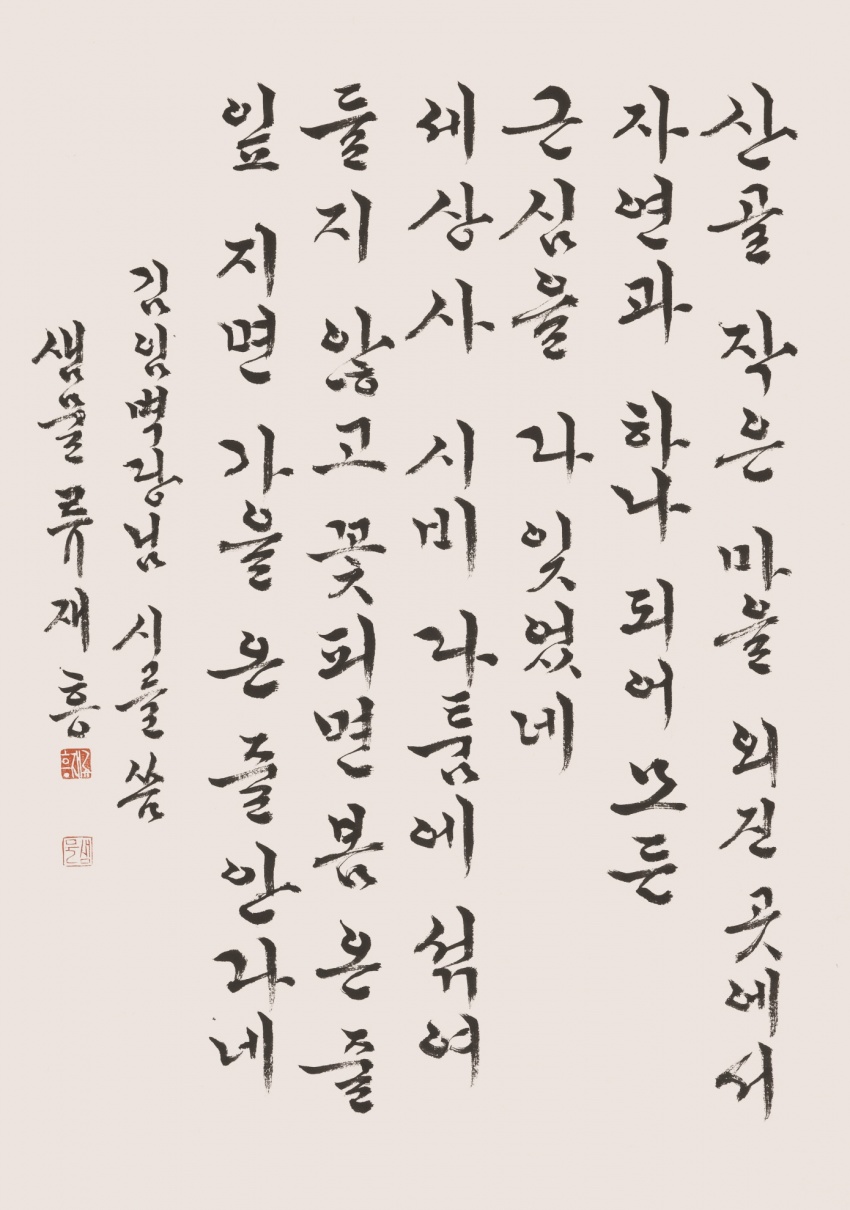 산골 작은 마을 외진 곳에서
자연과 하나 되어 모든
근심을 다 잊었네
세상사 시비 다툼에 섞여
들지 않고 꽃피면 봄 온 줄
잎 지면 가을 온 줄 안다네
김임벽강님 시를 씀
샘물 류재흥
샘물